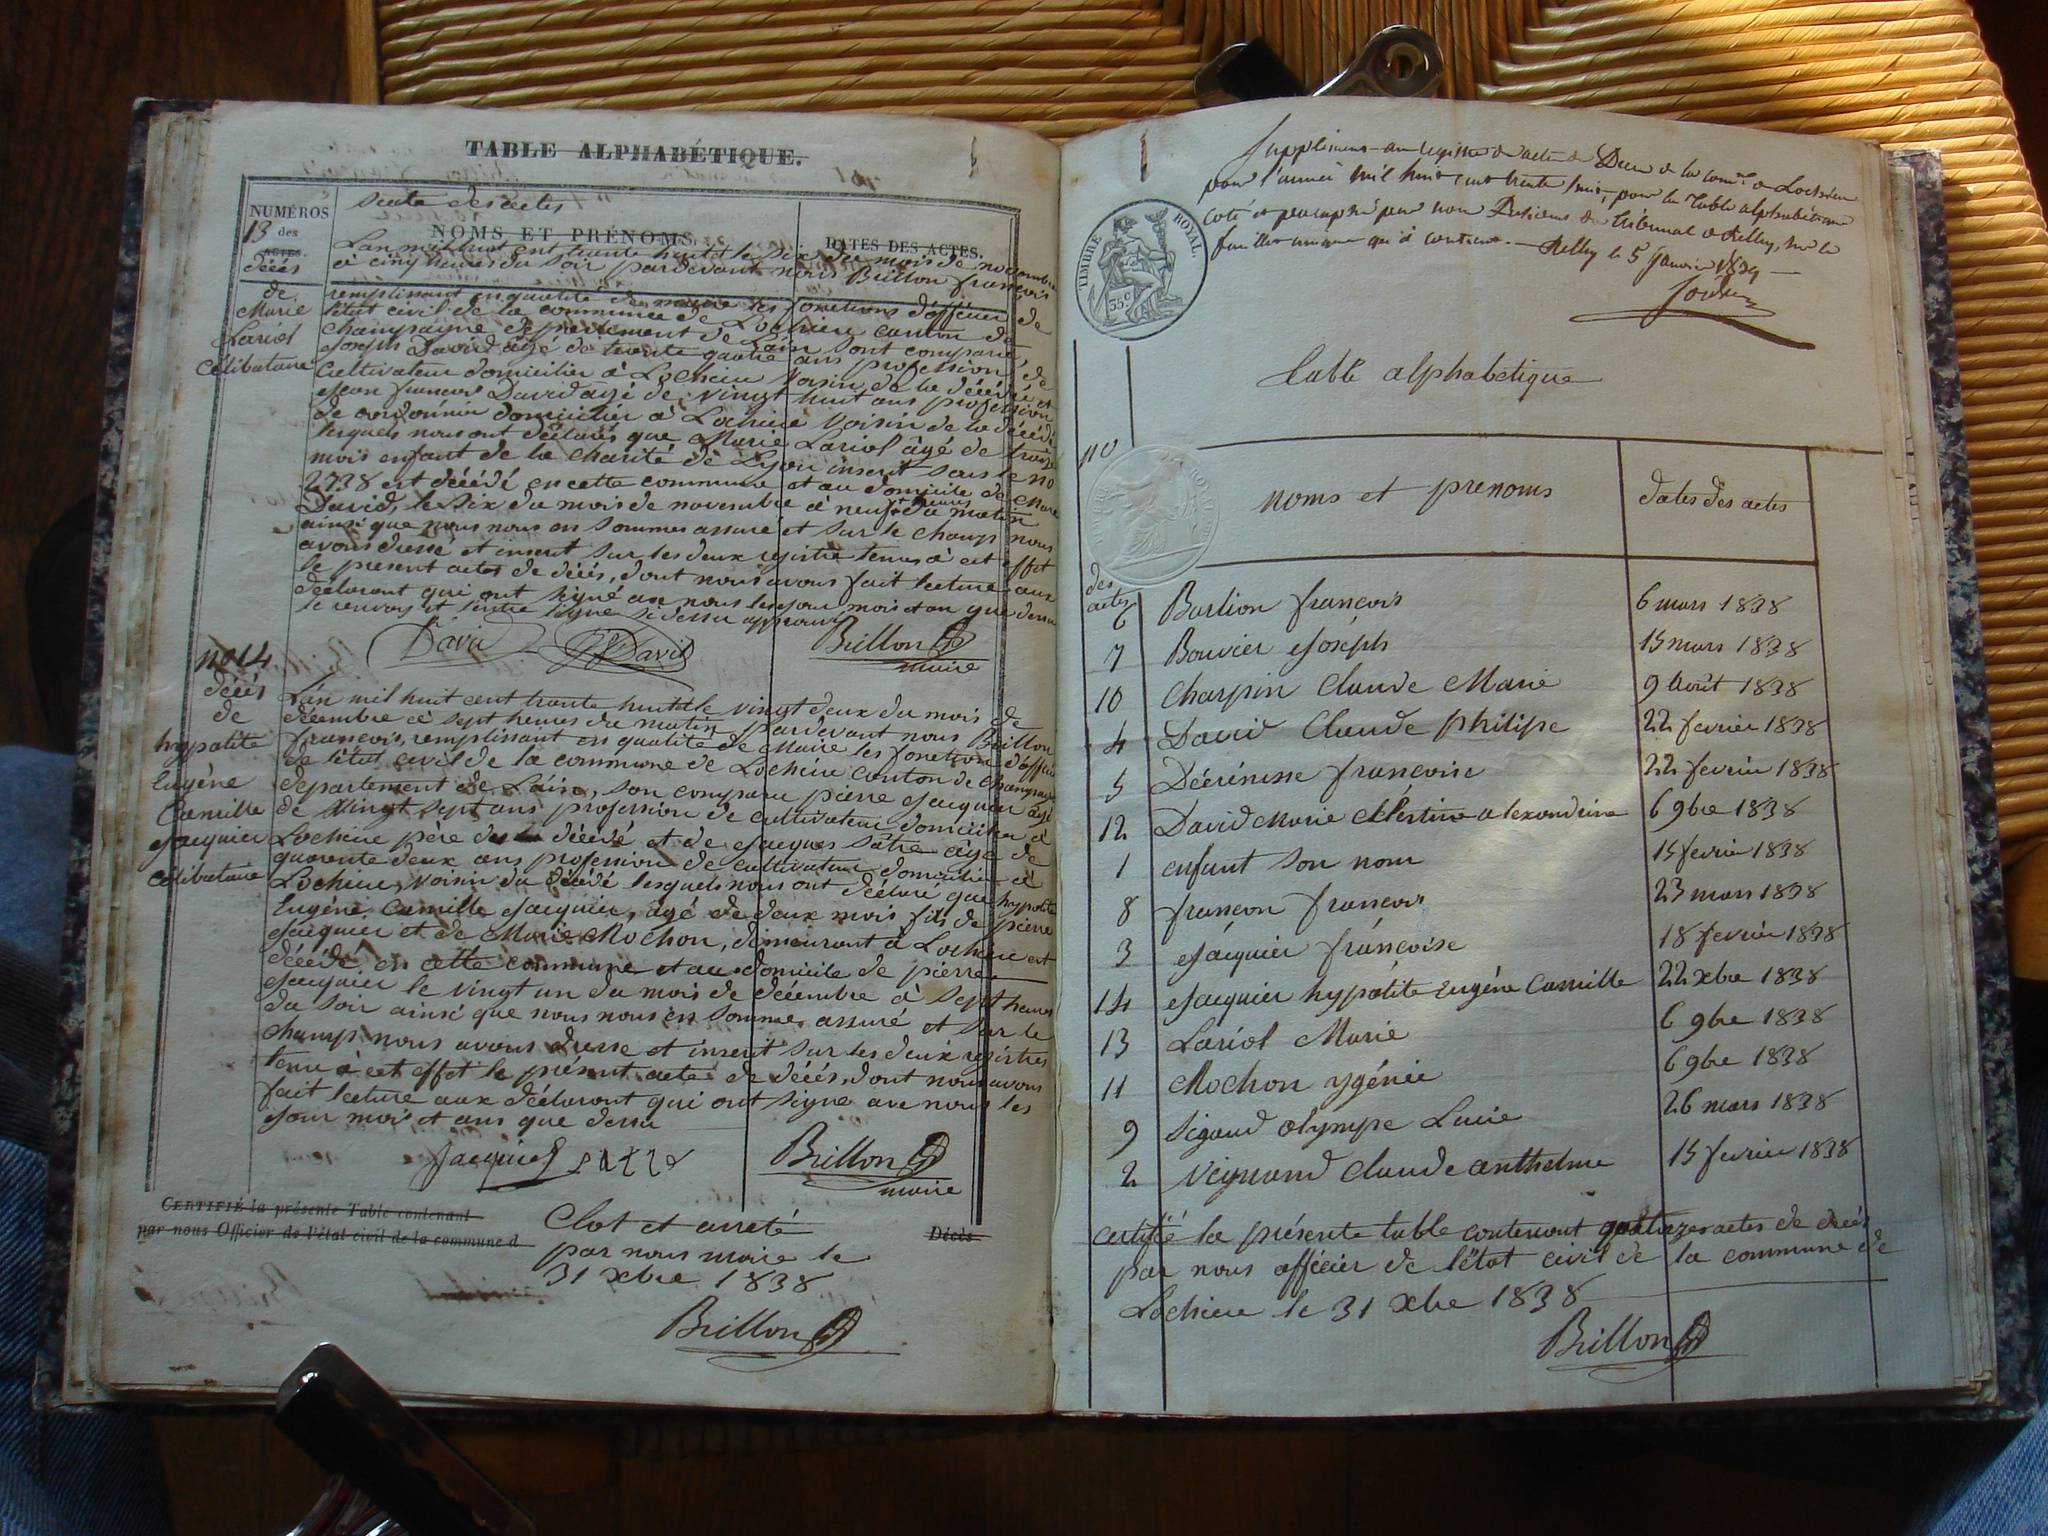 TABLE ALPHABÉTIQUE.
NUMÉROS
13 des
ACTES.
décés
de
Marie
Lariol
Célibataire
suite des actes
NOMS ET PRÉNOMS.
DATES DES ACTES.
L'an mil huit cent trante huit le six du mois de novembre
à cinq heures du soir pardevant nous Brillon françois
remplissant en qualité de maire les fonctions d'officier de
l'état civil de la commune de Lochieu canton de
Champagne département de Lain sont comparu,
Joseph David âgé de trante quatre ans profession de
Cultivateur domicilier à Lochieu voisin de la décédé et
Jean françois David âgé de vingt huit ans profession
de cordonnier domicilier à Lochieu voisin de la décédé
lesquels nous ont déclarés que Marie Lariol âgé de treize
mois enfant de la Charité de Lyon inscrit sous le no
2738 est décédé en cette commune et au domicile de Marc
David, le six du mois de novembre à neuf heures du matin
ainsi que nous nous en sommes assuré et sur le champ nous
avons dresse et inscrit sur les deux registre tenus à cet effet
le present actes de décés, dont nous avons fait lecture aux
déclarant qui ont signé avec nous les jour mois et an que dessus
le renvoy et lentre ligne si dessu approuvé
David JF David Brillon
maire
no 14
décés
de
hypolite
Eugène
Camille
Jacquier
Célibataire
L'an mil huit cent trante huit le vingt deux du mois de
décembre à sept heures du matin pardevant nous Brillon
françois, remplissant en qualité de Maire les fonctions d'officier
de l'état civil de la commune de Lochieu canton de Champagne
département de Lain, son comparu pierre Jacquier âgé
de vingt sept ans profession de cultivateur domicilier à
Lochieu père du décédé et de Jacques Satre âgé de
quarante deux ans profession de cultivateur domicilier à
Lochieu, voisin du décédé lesquels nous ont déclaré que hypolite
Eugéne Camille Jacquier, âgé de deux mois fils de pierre
Jacquier et de Marie Mochon, demeurant à Lochieu est
décédé en cette commune et au domicile de pierre
Jacquier le vingt un du mois de décembre à sept heures
du soir ainsi que nous nous en somme assuré et sur le
champ nous avons dresse et inscrit sur les deux registres
tenu à cet effet le présent acte de décés dont nous avons
fait lecture aux déclarant qui ont signe ave nous les
jour mois et ans que dessu
Jacquier Brillon
maire
CERTIFIÉ la présente Table contenant
par nous Officier de l'état civil de la commune d
Décès
Clot et arreté
par nous maire le
31 xbre 1838
Brillon
Supplément au registre des actes de Décès de la comne de Lochieu
pour l'année mil huit cent trente huit, pour la Table alphabétique
coté et paraphé par nous Président du Tribunal de Belley, sur le
feuillet unique qu'il contient. — Belley le 5 janvier 1839 —
TIMBRE ROYAL
35 c
table alphabetique
no
des
actes
noms et prenoms
dates des actes
6 Barlion françois 6 mars 1838
7 Bouvier Joséph 15 mars 1838
10 Charpin Claude Marie 9 Août 1838
4 David Claude philipe 22 fevrier 1838
5 Décrénisse francoise 22 fevrier 1838
12 David Marie Célestine alexandrine 6 9bre 1838
1 enfant son nom 15 fevrier 1838
8 françon françois 23 mars 1838
3 Jacquier françoise 18 fevrier 1838
14 Jacquier hypolite Eugéne Camille 22 xbre 1838
13 Lariol Marie 6 9bre 1838
11 Mochon ygénie 6 9bre 1838
9 Sigaud olympe Lucie 26 mars 1838
2 Veignand Claude anthelme 15 fevrier 1838
certifié la présente table contenant quatorze actes de décés
par nous officier de l'état civil de la commune de
Lochieu le 31 xbre 1838
Brillon